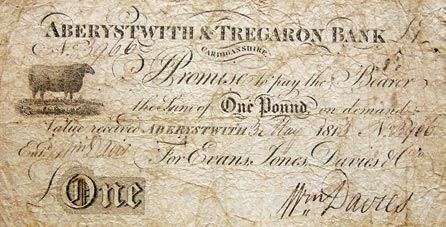 ABERYSTWITH & TREGARON BANK
CARDIGANSHIRE
I Promise to pay the Bearer
the Sum of One Pound on demand
Value received ABERYSTWITH May 181
For Evans, Jones, Davies & Co
£ One
Wm Davies